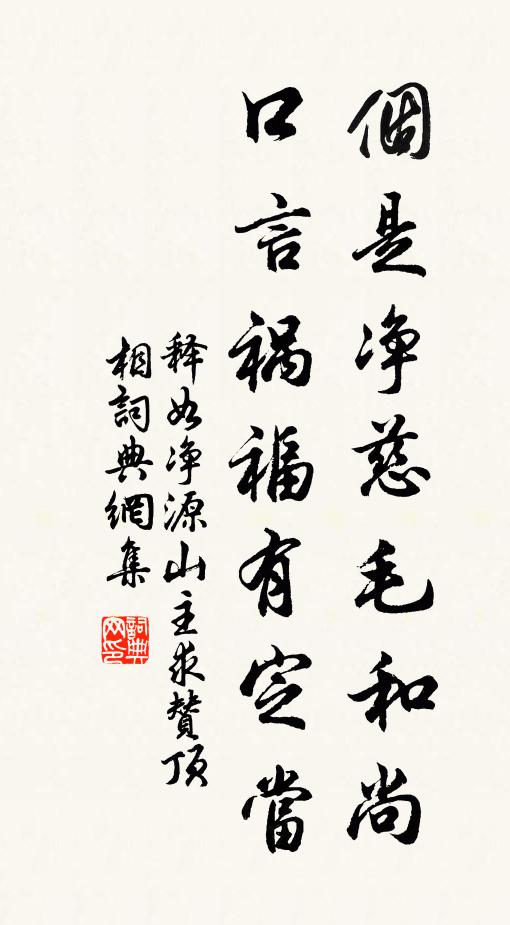 個是净慈毛和尚
口言禍福有定當
释如净源山主求贊顶
相詞典網集
詞典网印